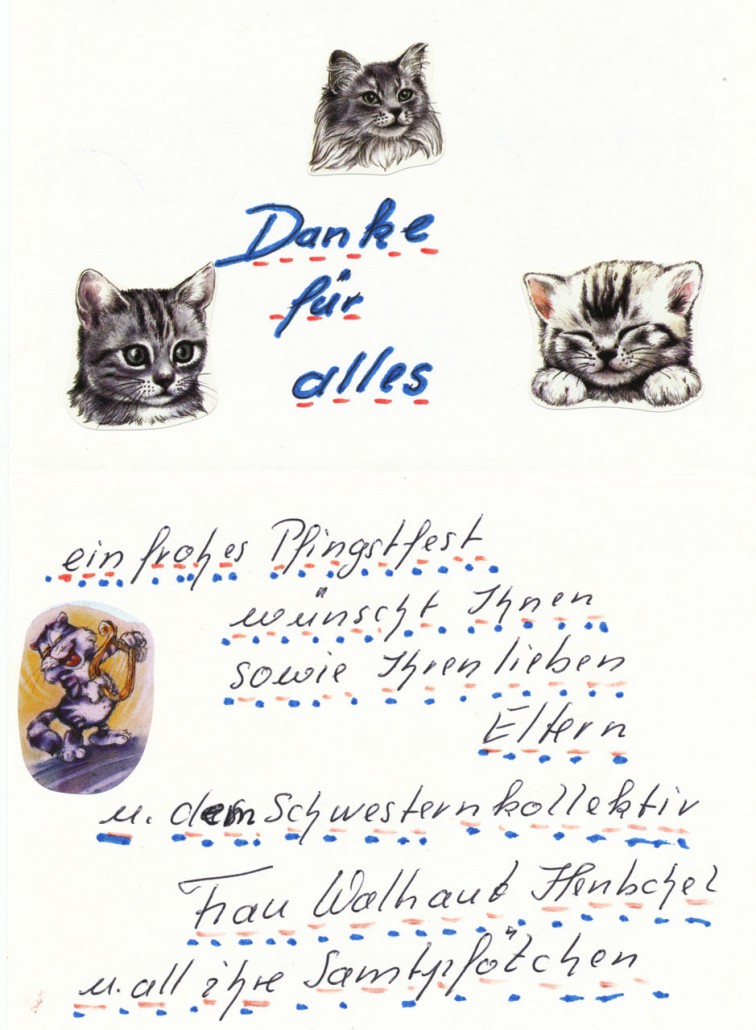 Danke
für
alles
ein frohes Pfingstfest
wünscht Ihnen
sowie Ihren lieben
Eltern
u. dem Schwesternkollektiv
Frau Waltraut Hentschel
u. all ihre Samtpfötchen